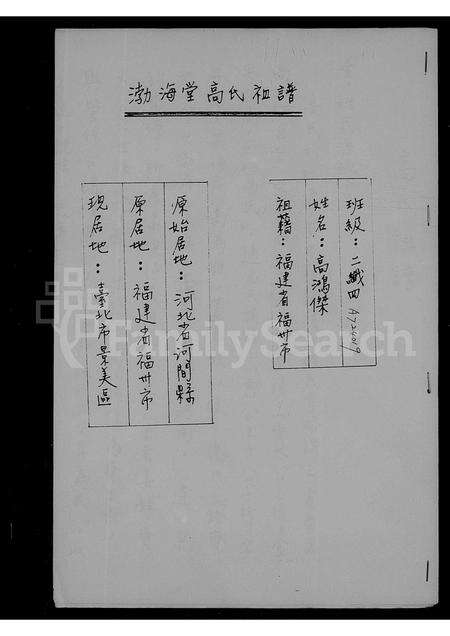 渤海堂高氏祖譜
班級：二織四 A724019
姓名：高鴻傑
祖籍：福建省福州市
原始居地：河北省河間縣
原居地：福建省福州市
現居地：臺北市景美區
FamilySearch